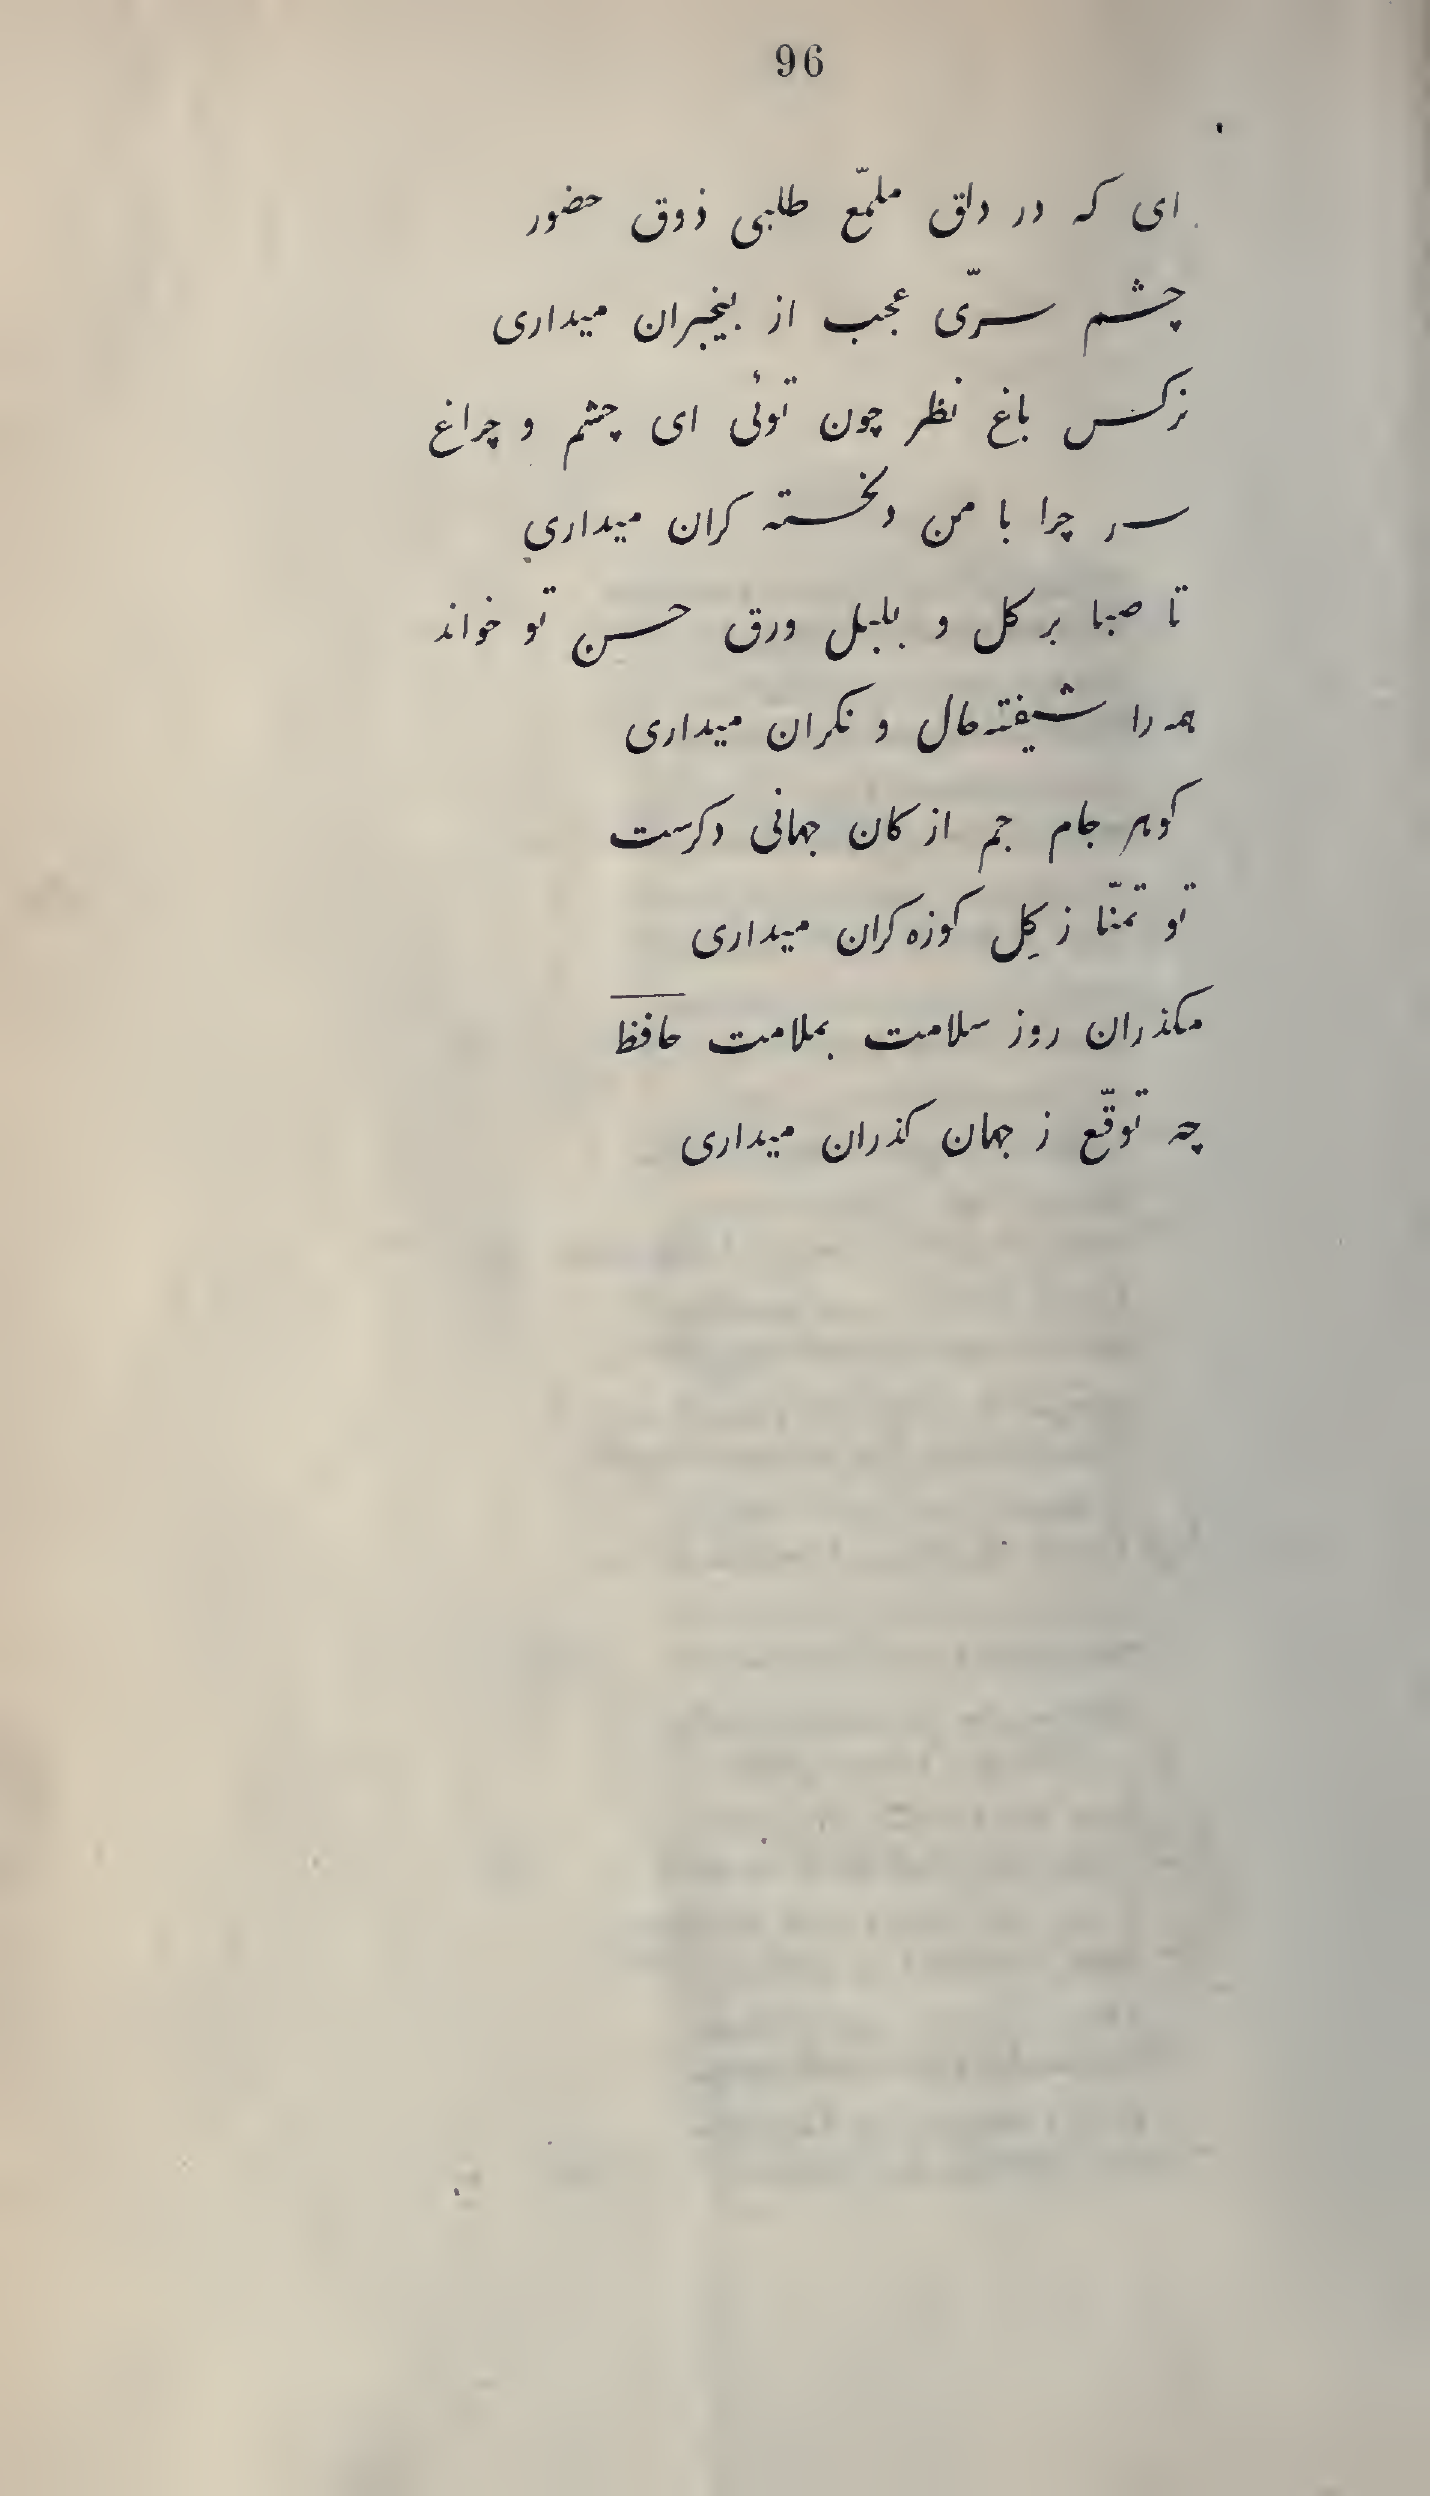 96
ای که در دلق ملمّع طلبی ذوق حضور
چشم سرّی عجب از بیخبران میداری
نرکس باغ نظر چون توئی ای چشم و چراغ
سر چرا با من دلخسته کران میداری
تا صبا بر کل و بلبل ورق حسن تو خواند
همه را شیفته‌حال و نکران میداری
کوهر جام جم از کان جهانی دکرست
تو تمنّا ز کِل کوزه‌کران میداری
مکذران روز سلامت بملامت حافظ
چه توقّع ز جهان کذران میداری